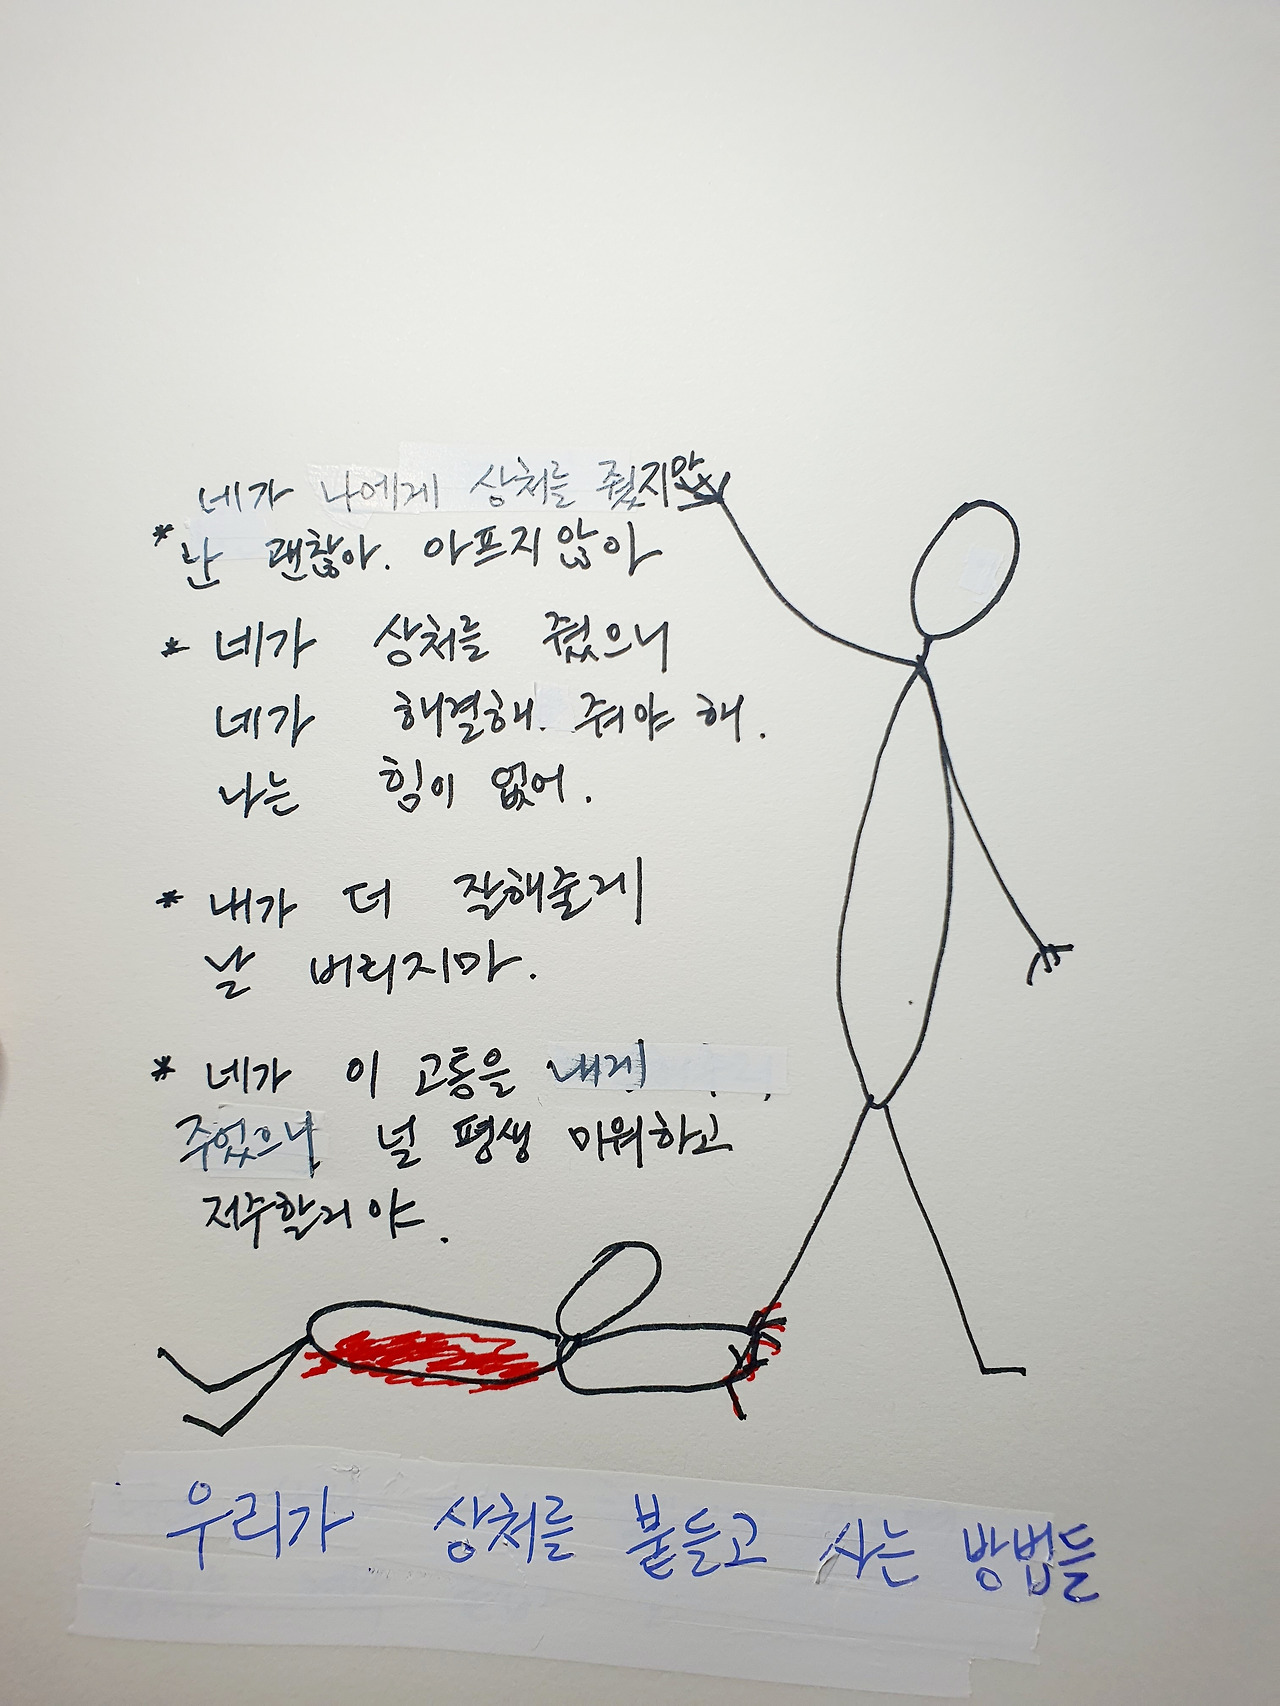 네가 나에게 상처를 줬지만
* 난 괜찮아. 아프지 않아
* 네가 상처를 줬으니
네가 해결해 줘야 해.
나는 힘이 없어.
* 내가 더 잘해줄게
날 버리지마.
* 네가 이 고통을 내게
주었으니 널 평생 미워하고
저주할거야.
우리가 상처를 붙들고 사는 방법들